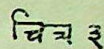 चित्र ३